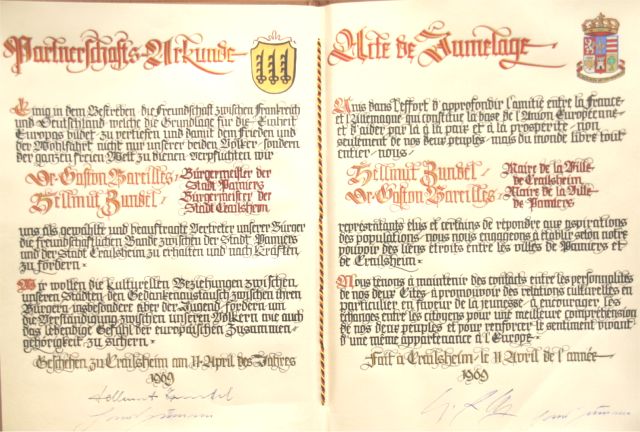 Partnerschafts-Urkunde
Einig in dem Bestreben die Freundschaft zwischen Frankreich
und Deutschland welche die Grundlage für die Einheit
Europas bildet zu vertiefen und damit dem Frieden und
der Wohlfahrt nicht nur unserer beiden Völker sondern
der ganzen freien Welt zu dienen verpflichten wir
Dr Gaston Bareilles Bürgermeister der
Stadt Pamiers
Hellmut Zundel Bürgermeister der
Stadt Crailsheim
uns als gewählte und beauftragte Vertreter unserer Bürger
die freundschaftlichen Bande zwischen der Stadt Pamiers
und der Stadt Crailsheim zu erhalten und nach Kräften
zu fördern
Wir wollen die kulturellen Beziehungen zwischen
unseren Städten den Gedankenaustausch zwischen ihren
Bürgern insbesondere aber der Jugend fördern um
die Verständigung zwischen unseren Völkern wie auch
das lebendige Gefühl der europäischen Zusammen-
gehörigkeit zu sichern
Geschehen zu Crailsheim am 11 April des Jahres
1969
Hellmut Zundel
Acte de Jumelage
Unis dans l'effort d'approfondir l'amitié entre la France
et l'Allemagne qui constitue la base de l'Union Européenne
et d'aider par là à la paix et à la prospérité non
seulement de nos deux peuples mais du monde libre tout
entier nous
Hellmut Zundel Maire de la Ville
de Crailsheim
Dr Gaston Bareilles Maire de la Ville
de Pamiers
représentants élus et certains de répondre aux aspirations
des populations nous nous engageons à établir selon notre
pouvoir des liens étroits entre les villes de Pamiers et
de Crailsheim
Nous tenons à maintenir des contacts entre les personnalités
de nos deux Cités à promouvoir des relations culturelles en
particulier en faveur de la jeunesse à encourager les
échanges entre les citoyens pour une meilleure compréhension
de nos deux peuples et pour renforcer le sentiment vivant
d'une même appartenance à l'Europe
Fait à Crailsheim le 11 Avril de l'année
1969